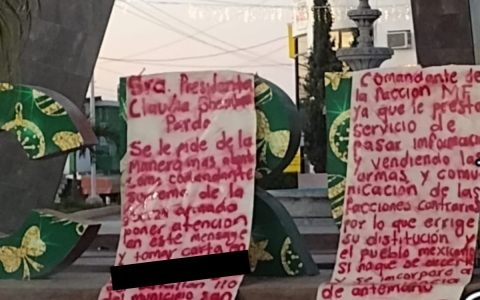 Sra. Presidenta
Claudia Sheinbaum
Pardo
Se le pide de la
manera mas atenta
como comandante
suprema de la
afinado
poner atencion
en este mensaje
y tomar carta en
batallon 110
del municipio san
Comandante de
la Faccion MF
ya que le presta
servicio de
pasar informacion
y vendiendo las
armas y comu
nicacion de las
facciones contrarias
por lo que exige
su distitución y
el pueblo mexicano
si haque se
y se incorpore a
de antemano